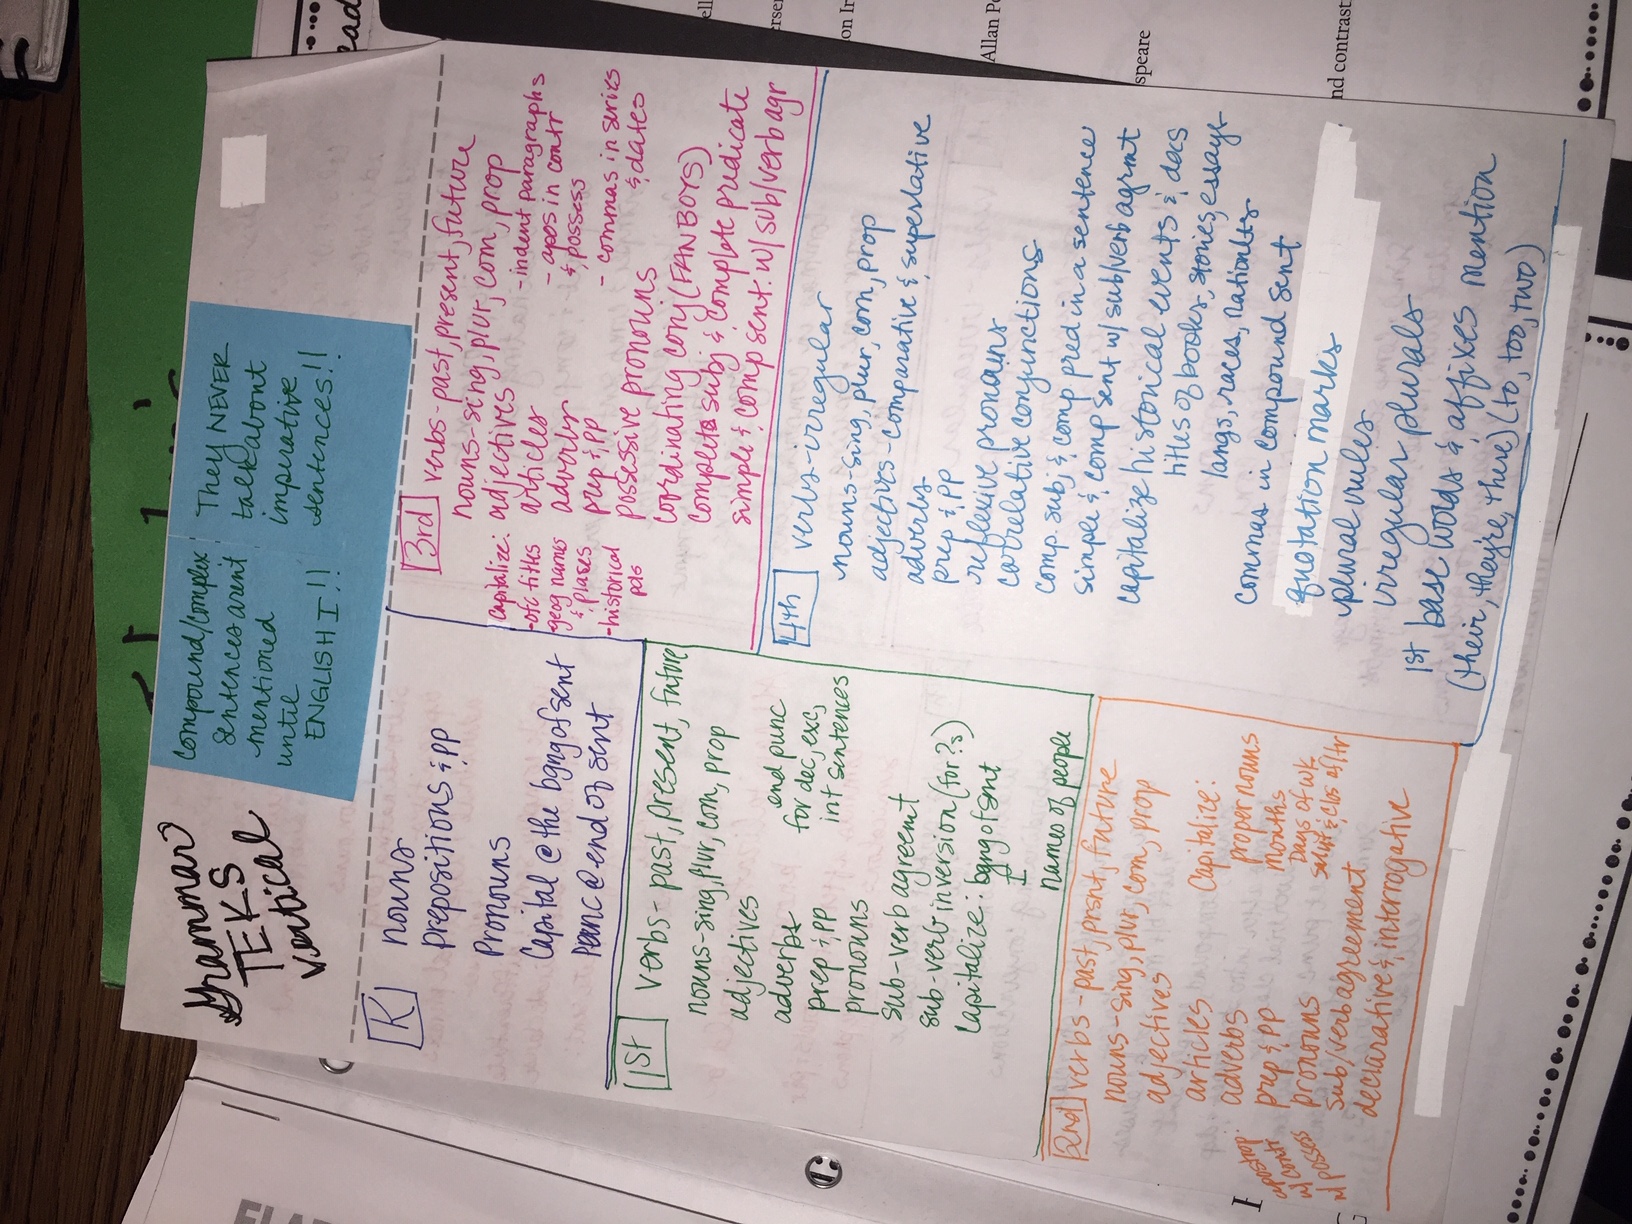 Grammar
TEKS
vertical
Compound/Complex
sentences arent
mentioned
until
ENGLISH I!!
They NEVER
talk about
imperative
sentences!!
K
nouns
prepositions & PP
Pronouns
Capital @ the bgng of sent
Punc @ end of sent
1st
verbs - past, present, future
nouns - sing, plur, com, prop
adjectives
adverbs
prep & PP
pronouns
end punc
for dec, exc,
int sentences
sub-verb agreemt
sub-verb inversion (for ?s)
Capitalize: bgng of sent
I
names of people
2nd
verbs - past, prsnt, future
nouns - sing, plur, com, prop
adjectives
articles
adverbs
prep & PP
pronouns
sub/verb agreement
declarative & interrogative
Capitalize:
proper nouns
Months
Days of wk
salut & clos of ltr
apostrop.
w/ contr
w/ possess
3rd
verbs - past, present, future
nouns - sing, plur, com, prop
adjectives
articles
adverbs
prep & PP
possessive pronouns
coordinating conj (FANBOYS)
complete subj & complete predicate
simple & comp sent. w/ sub/verb agr
- indent paragraphs
- apos in contr
& possess
- commas in series
& dates
Capitalize:
- ofc titles
- geog names
& places
- historical
pds
4th
verbs - irregular
nouns - sing, plur, com, prop
adjectives - comparative & superlative
adverbs
prep & PP
reflexive pronouns
correlative conjunctions
comp. subj & comp pred in a sentence
simple & comp sent w/ sub/verb agrmt
capitalize historical events & docs
titles of books, stories, essays
langs, races, nationlts
commas in compound sent
quotation marks
plural rules
irregular plurals
1st base words & affixes mention
(their, they're, there) (to, too, two)
ead
ell
on Ir
Allan Po
speare
nd contrast
ELA